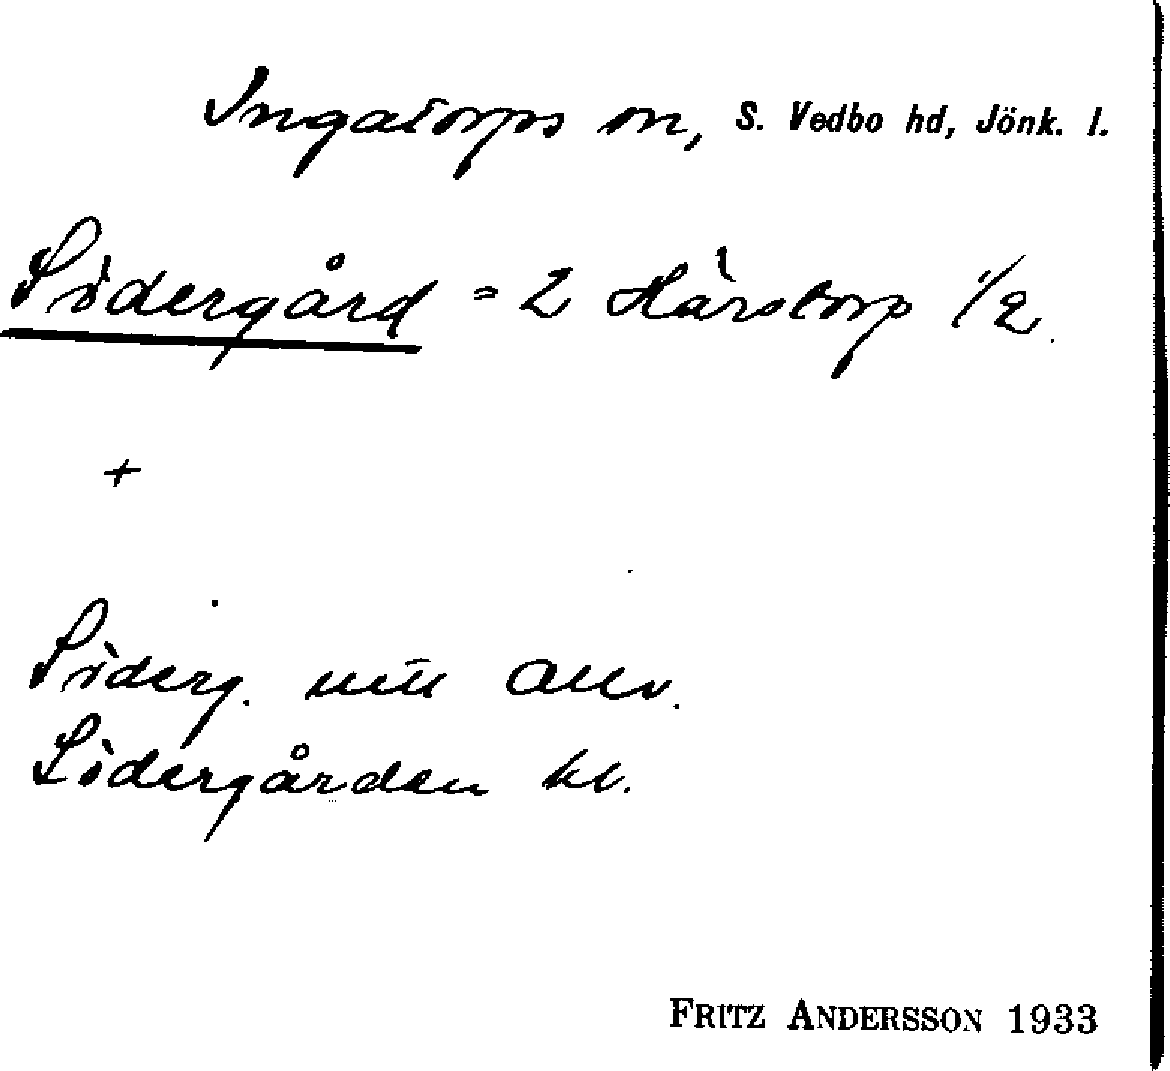 Ingatorps sn, S. Vedbo hd, Jönk. l.
Södergård = 2 Härstorp 1/2
+
Söderg.
Södergården kl.
FRITZ ANDERSSON 1933